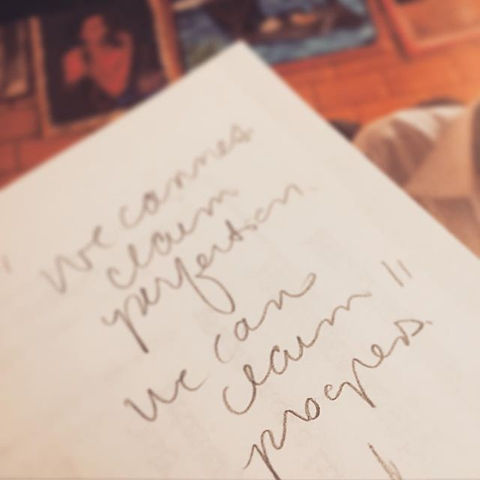 "we cannot
claim
perfection.
we can
claim
progress."